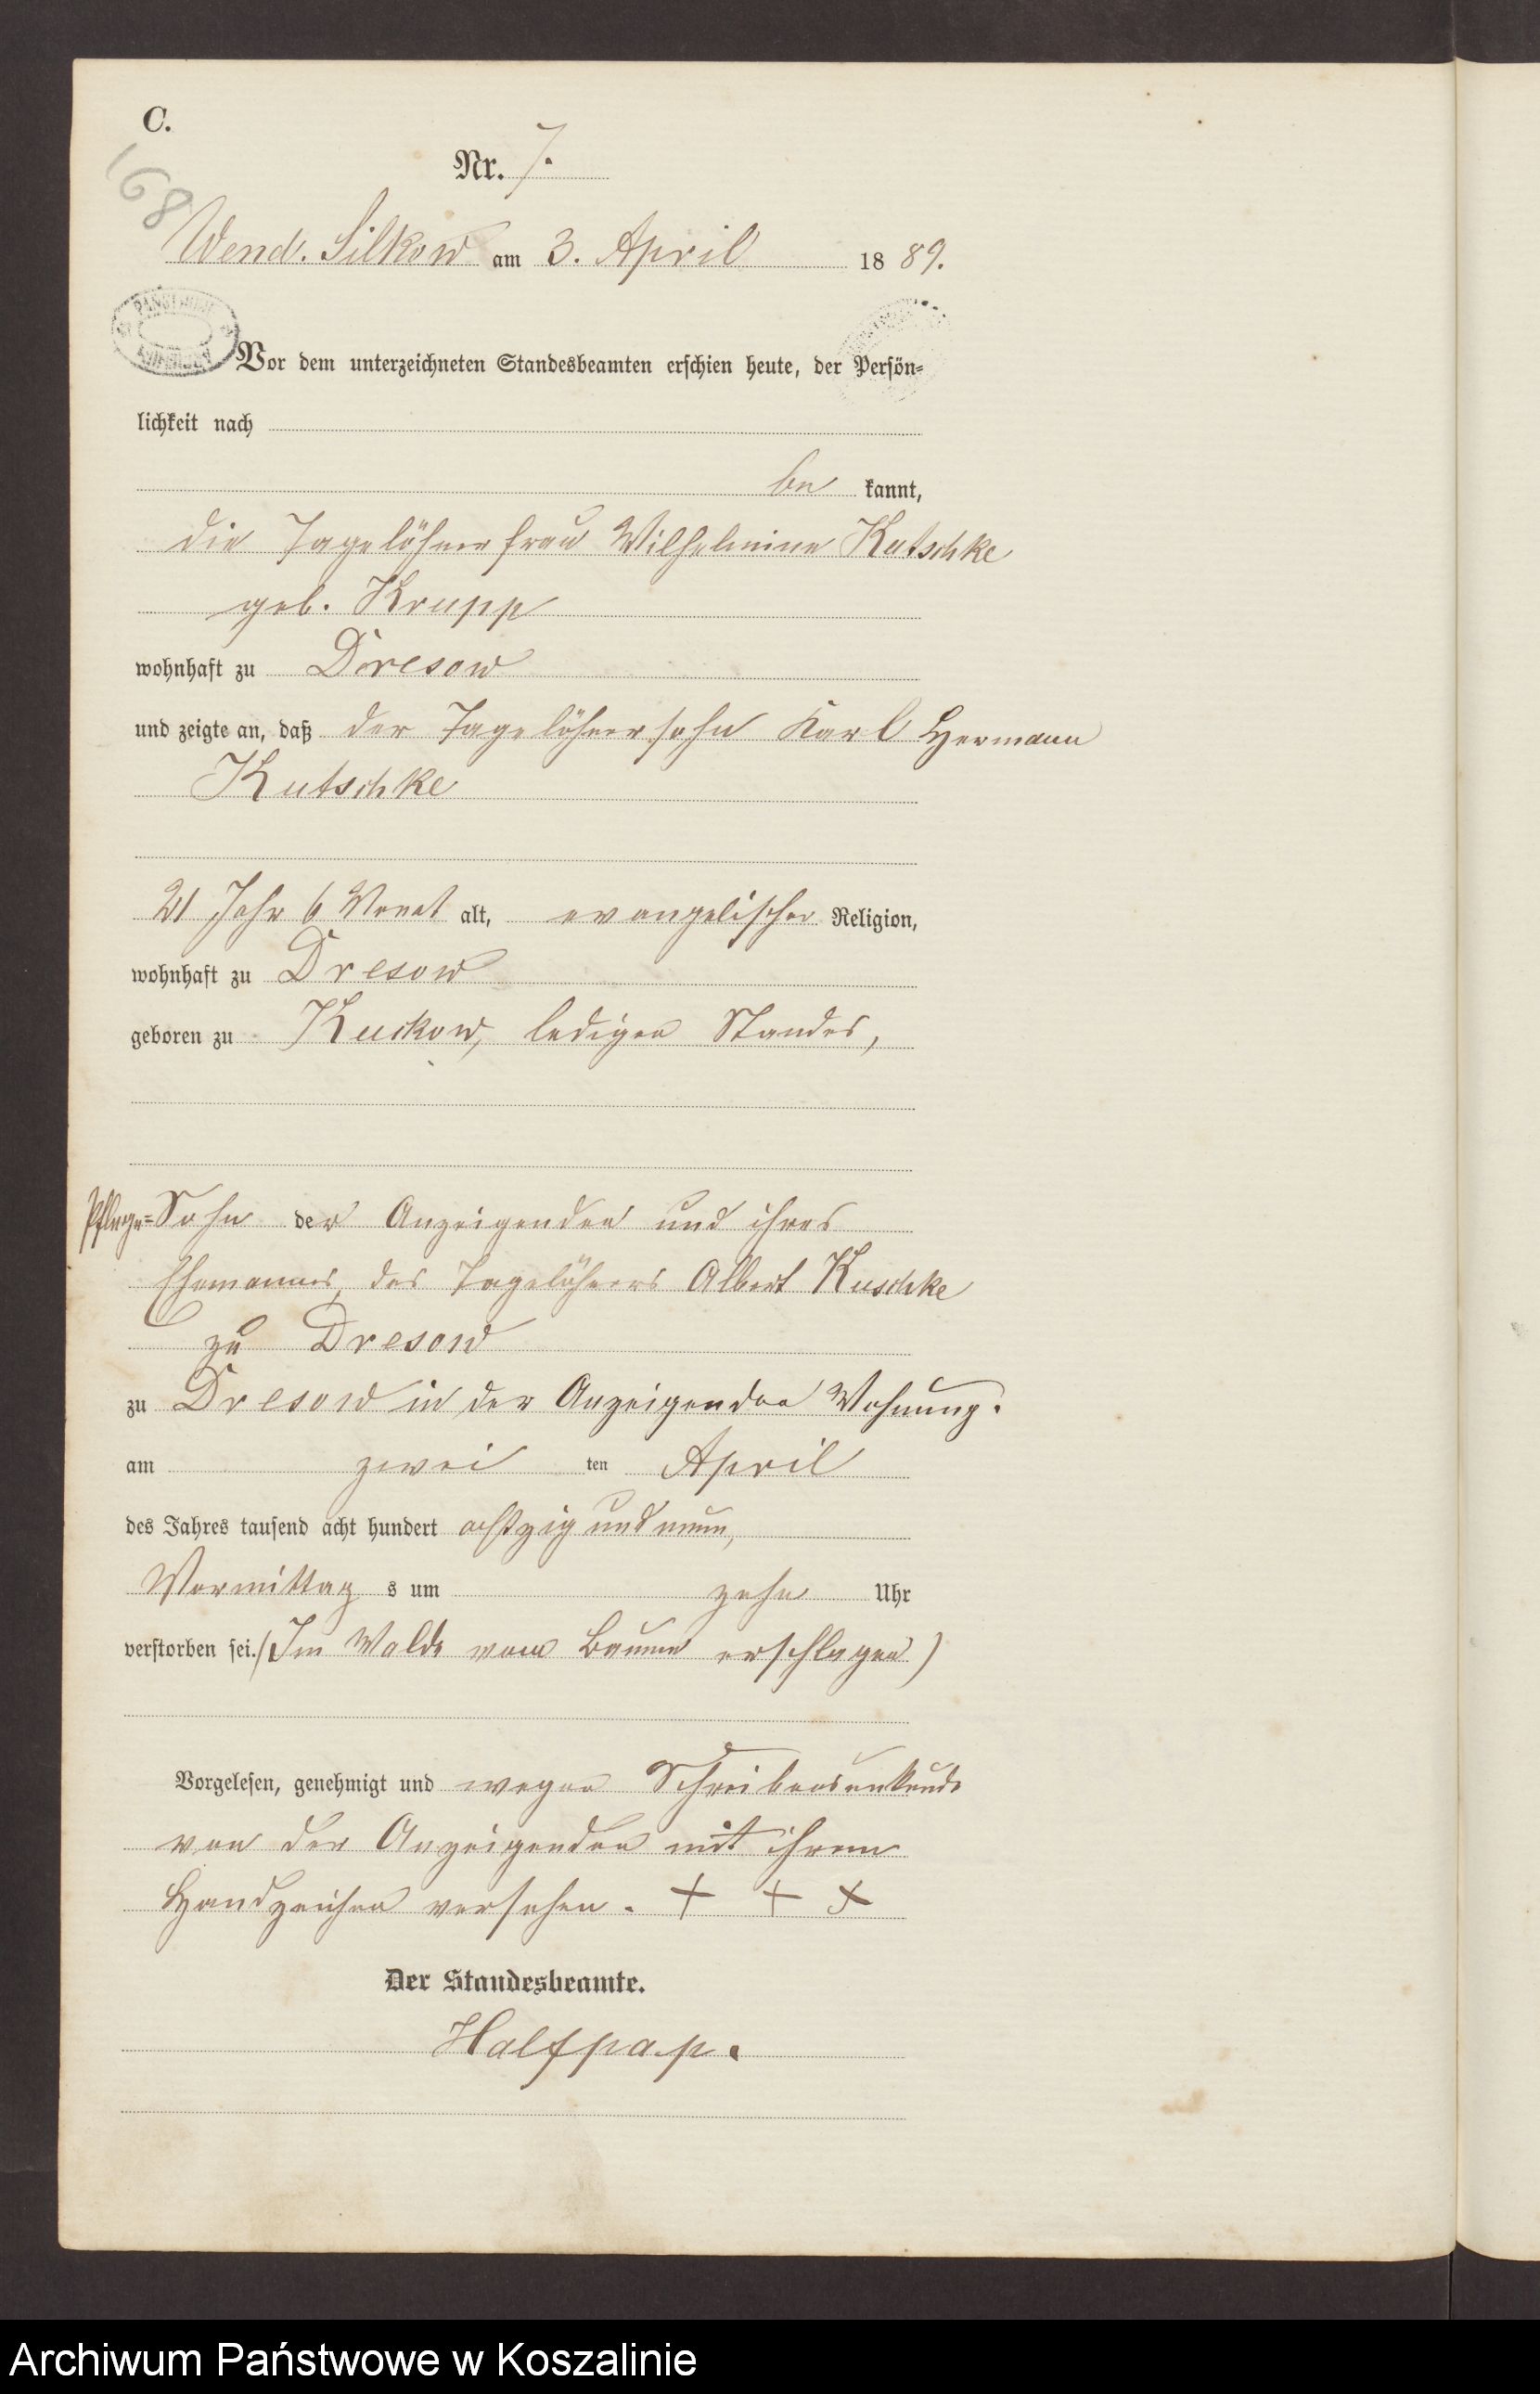 C.
168
Nr. 7.
Wend. Silkow am 3. April 1889.
PAŃSTWOWE
Vor dem unterzeichneten Standesbeamten erschien heute, der Persön-
lichkeit nach
be kannt,
die Tagelöhnerfrau Wilhelmine Kutschke
geb. Krupp
wohnhaft zu Dresow
und zeigte an, daß der Tagelöhnersohn Karl Hermann
Kutschke
21 Jahr 6 Monat alt, evangelischer Religion,
wohnhaft zu Dresow
geboren zu Kuckow, ledigen Standes,
Pflege-Sohn der Anzeigenden und ihres
Ehemannes, des Tagelöhners Albert Kuschke
zu Dresow
zu Dresow in der Anzeigenden Wohnung.
am zwei ten April
des Jahres tausend acht hundert achtzig und neun,
Vormittag s um zehn Uhr
verstorben sei. (Im Walde vom Baume erschlagen)
Vorgelesen, genehmigt und wegen Schreibensunkunde
von der Anzeigenden mit ihrem
Handzeichen versehen. + + +
Der Standesbeamte.
Halfpap.
Archiwum Państwowe w Koszalinie